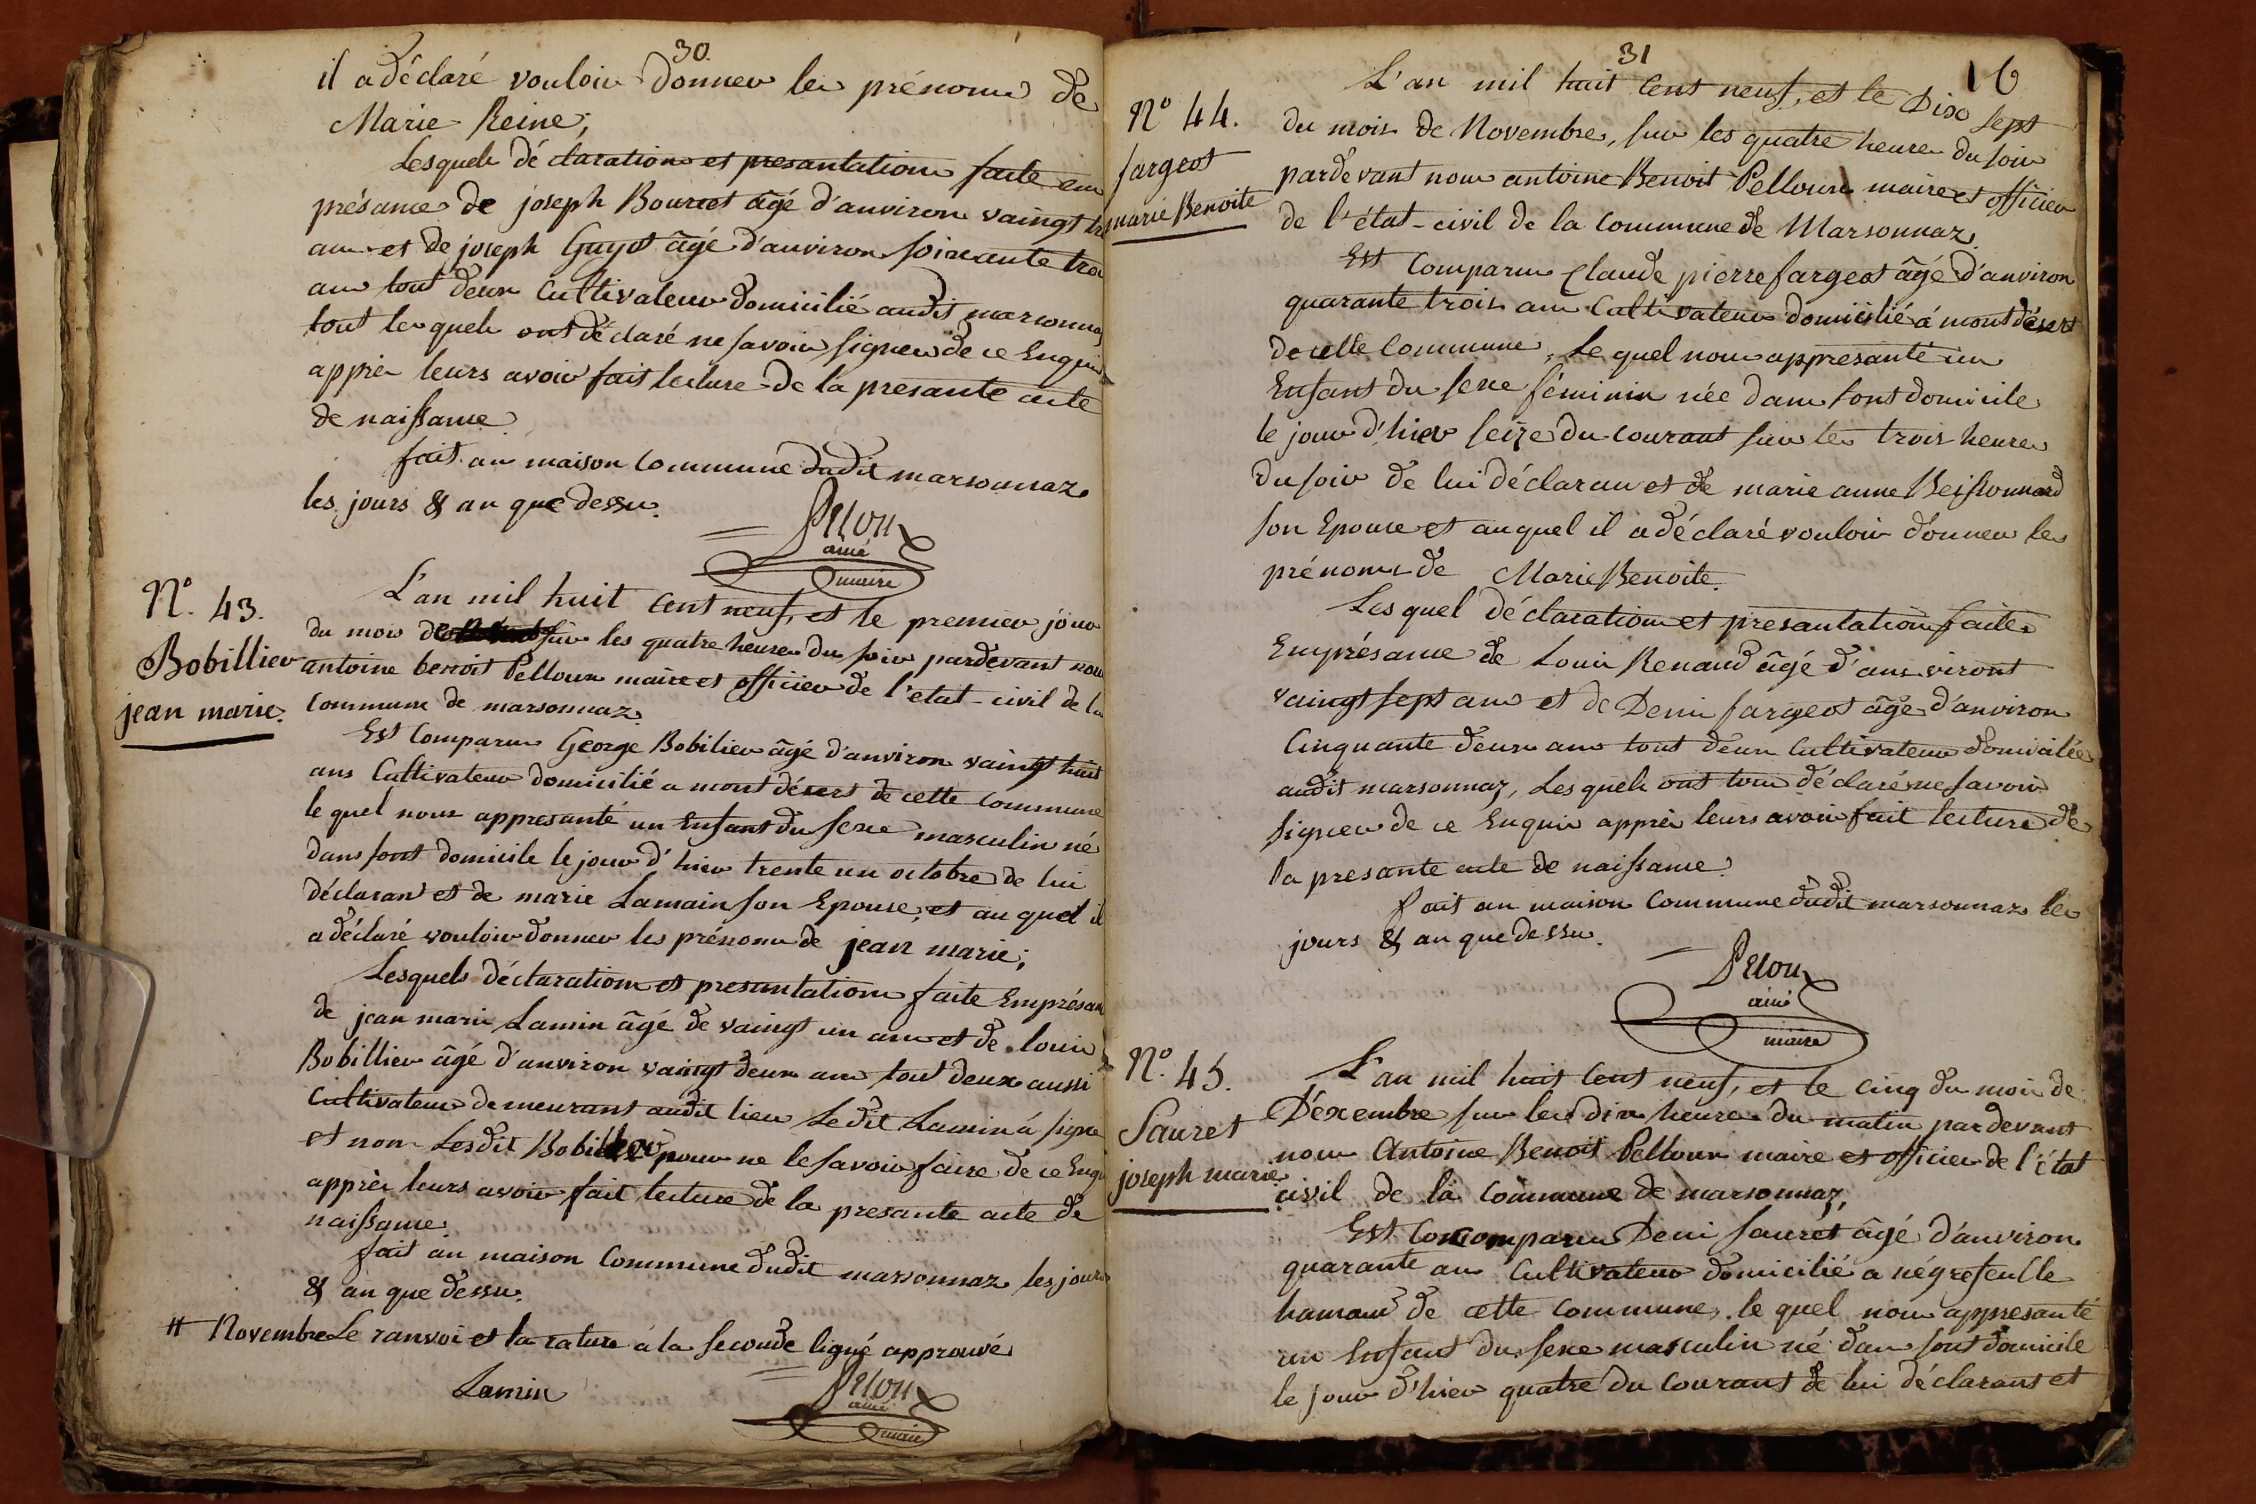 30
il a déclaré vouloir donner les prénoms de
Marie Reine;
Lesquels déclaration et presantation faite en
présance de joseph Bourcet âgé d'anviron vaingt
ans et de joseph Guyot âgé d'anviron soixante
ans tout deux Cultivateur domicilié audit
tout lesquels ont déclaré ne savoir signer de ce Enquis
apprès leurs avoir fait lecture de la presante acte
de naissance
fait an maison commune dudit marsonnaz
les jours & an que dessu.
Pelou
ainé
maire
N.° 43.
Bobillier
jean marie.
L'an mil huit cent neuf, et le premier jour
du mois de sur les quatre heures du soir pardevant nous
antoine benoit Pelloux maire et officier de l'état-civil de la
commune de marsonnaz.
Est Comparu George Bobilier âgé d'anviron vaingt huit
ans Cultivateur domicilié a mont désert de cette commune
le quel nous appresanté un Enfant du sexe masculin né
dans sont domicile le jour d'hier trente un octobre de lui
déclarant et de marie Lamain son Epouse, et au quel il
a déclaré vouloir donner les prénoms de jean marie;
Lesquels déclaration et presantation faite Emprésan
de jean marie Lamin âgé de vaingt un ans et de louis
Bobillier âgé d'anviron vaingt deux ans tout deux aussi
Cultivateur demeurant audit lieu Ledit Lamin à signé
et non Lesdit Bobillier pour ne le savoir faire de ce Enqu
apprès leurs avoir fait lecture de la presante acte de
naissance.
fait an maison Commune dudit marsonnaz les jours
& an que dessu.
# Novembre Le ranvoi et la rature à la seconde ligne approuvé
Lamin
Pelou
ainé
maire
31
16
N° 44.
fargeot
marie Benoite
L'an mil huit cent neuf, et le Dix sept
du mois de Novembre, sur les quatre heures du soir
pardevant nous antoine Benoit Pelloux maire et officier
de l'état-civil de la commune de Marsonnaz.
Est Comparu Claude pierre fargeot âgé d'anviron
quarante trois ans Caltivateur domicilié á mont désert
de cette commune, Le quel nous appresanté un
Enfant du sexe féminin née dans sont domicile
le jour d'hier seize du courant sur les trois heures
du soir de lui déclarant et de marie anne
son Epouse et auquel il a déclaré vouloir donner les
prénoms de Marie Benoite.
Les quel déclaration et presantation faite
Emprésance de Louis Renaud âgé d'anviront
vaingt sept ans et de Denis fargeot âgé d'anviron
Cinquante deux ans tout deux Cultivateur domicilée
audit marsonnaz, Lesquels ont tous déclaré ne savoir
signer de ce Enquis apprès leurs avoir fait lecture de
la presante acte de naissance.
fait an maison Commune dudit marsonnaz les
jours & an que dessu.
Pelou
ainé
maire
N° 45.
Sauret
joseph marie
L'an mil huit Cent neuf, et le cinq du mois de
Déxembre sur les dix heures du matin par devant
nous Antoine Benoit Pelloux maire et officier de l'état
civil de la commune de marsonnaz,
Est Concomparu Deni Sauret âgé d'anviron
quarante ans Cultivateur domicilié a négrefeuille
hamau de cette commune, le quel nous appresanté
un Enfant du sexe masculin né dans sont domicile
le jour d'hier quatre du courant de lui déclarant et